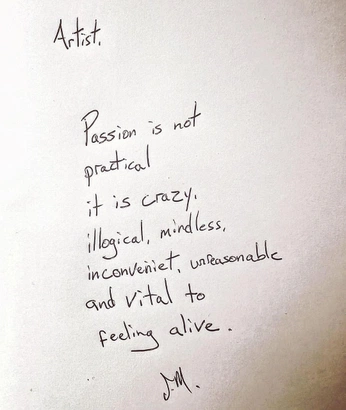 Artist.
Passion is not
practical
it is crazy,
illogical, mindless,
inconveniet, unreasonable
and vital to
feeling alive.
J.M.